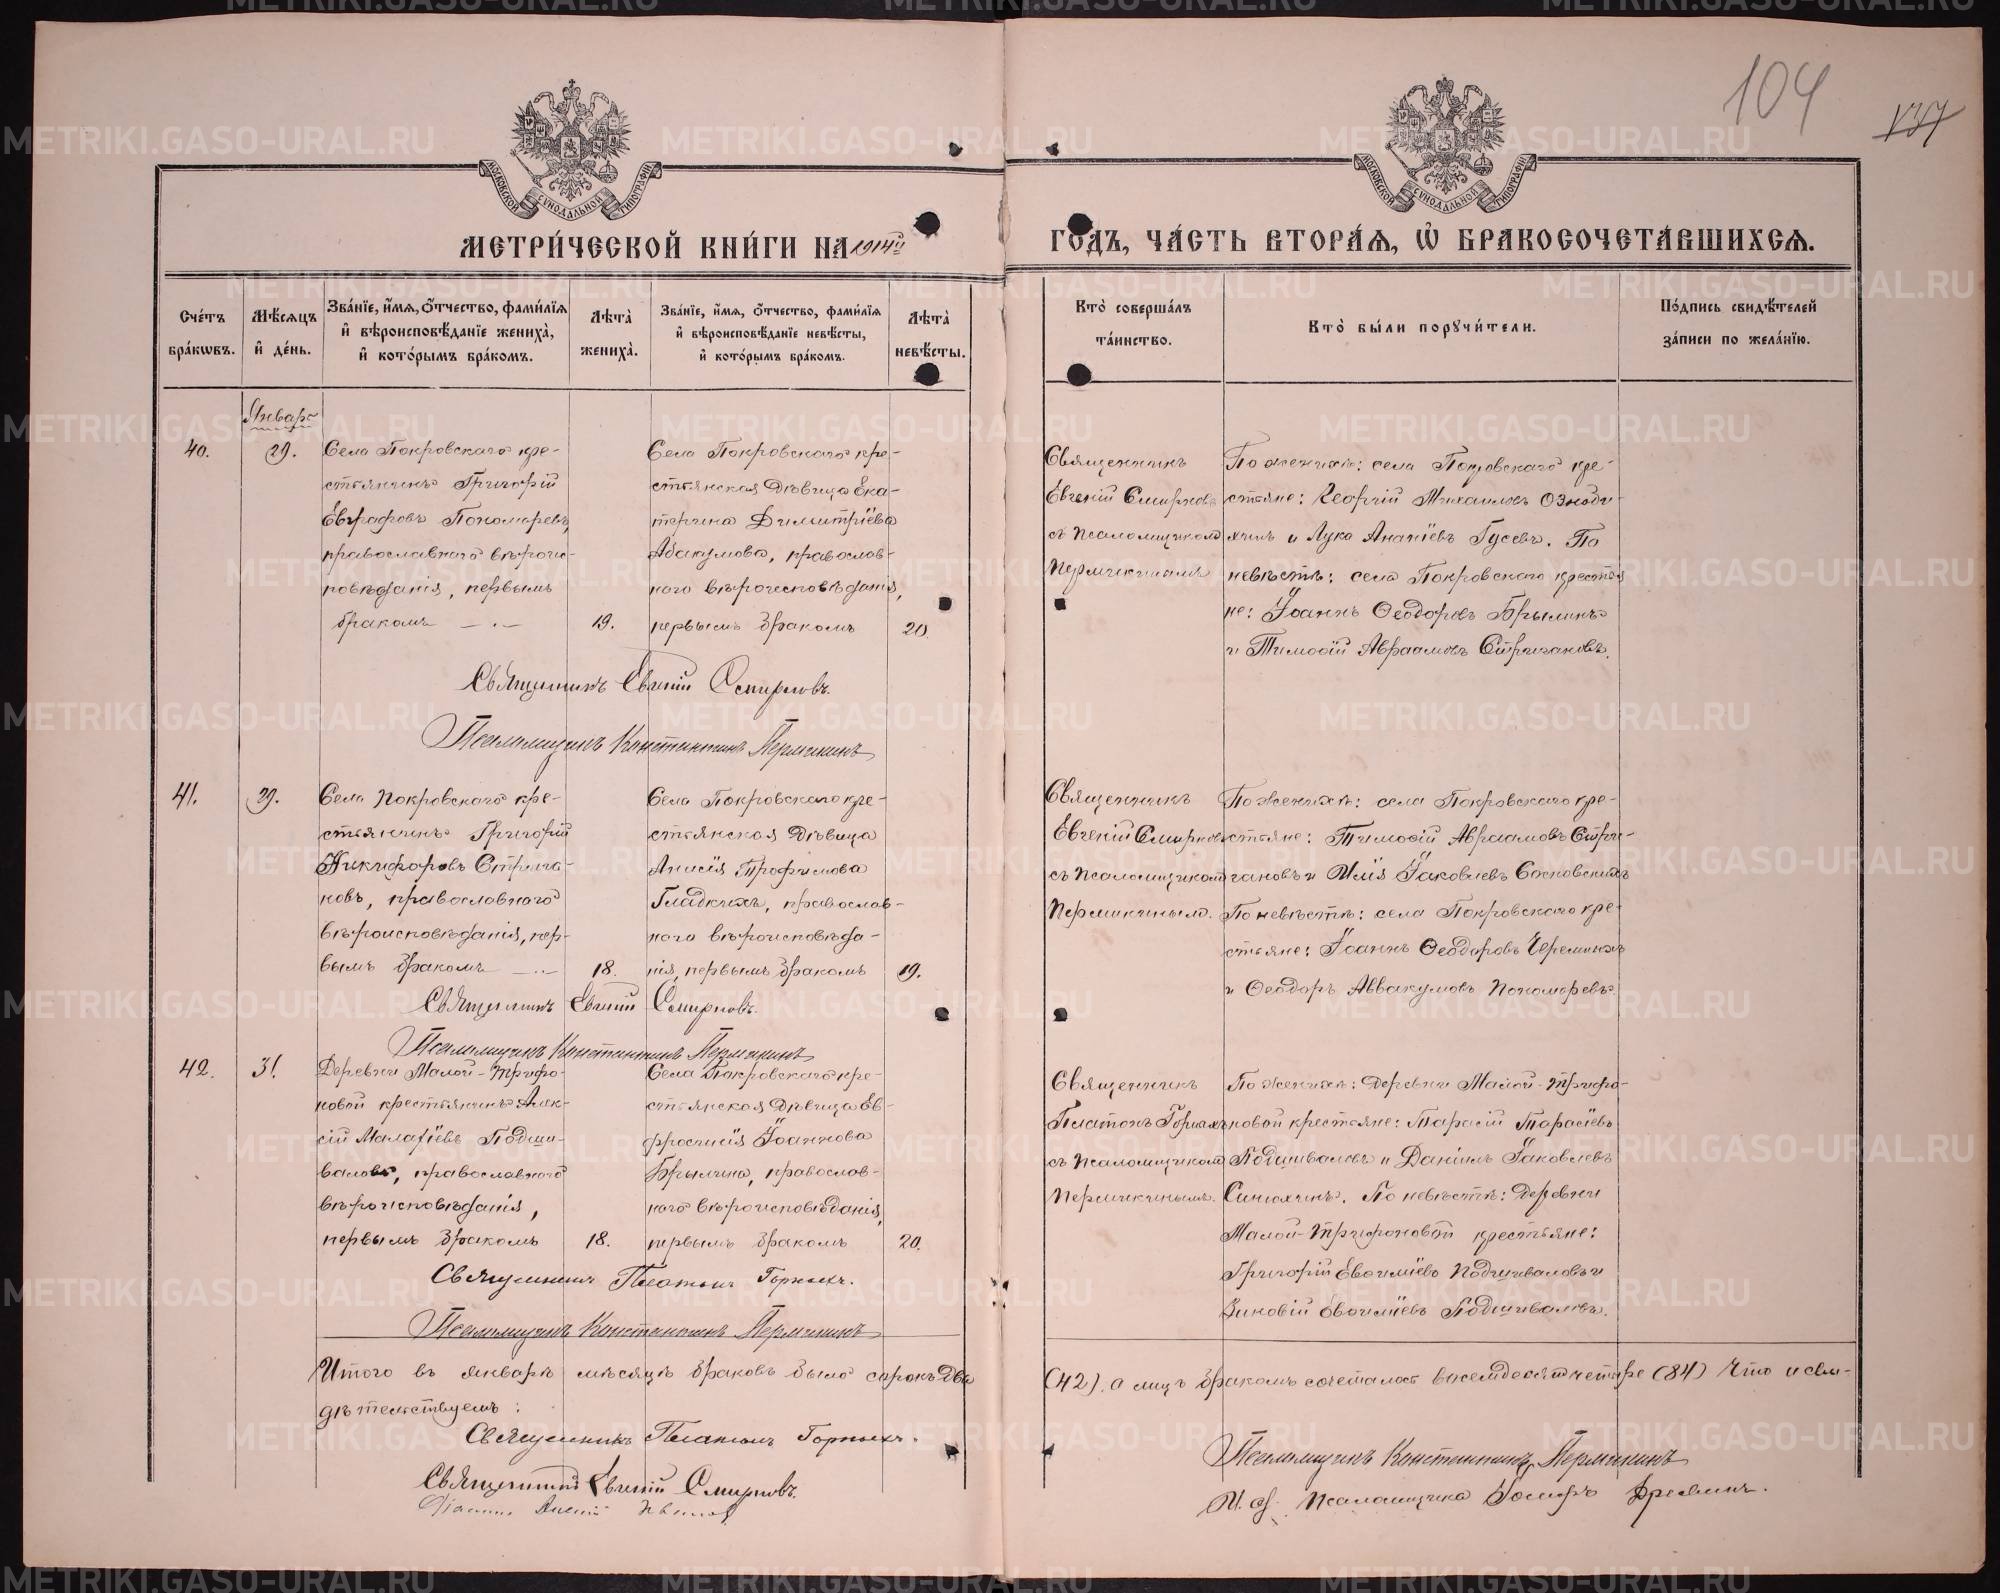 104
137
МЕТРИ́ЧЕСКОЙ КНИ́ГИ НА 1914й
ГО́ДЪ, ЧА́СТЬ ВТОРА́Я, Ѡ҆ БРАКОСОЧЕТА́ВШИХСЯ.
Сче́тъ бра́кѡвъ.
Мѣ́сяцъ и҆ де́нь.
Зва́нїе, и҆́мя, ѻ҆́тчество, фами́лїя и҆ вѣроисповѣ́данїе жениха̀, и҆ кото́рымъ бра́комъ.
Лѣ́та жениха̀.
Зва́нїе, и҆́мя, ѻ҆́тчество, фами́лїя и҆ вѣроисповѣ́данїе невѣ́сты, и҆ кото́рымъ бра́комъ.
Лѣ́та невѣ́сты.
Кто̀ соверша́лъ та́инство.
Кто̀ бы́ли порꙋчи́тели.
По́дпись свидѣ́телей за́писи по жела́нїю.
Январь
40.
29.
Села Покровскаго кре-
стьянинъ Григорій
Евграфовъ Пономаревъ,
православнаго вѣроис-
повѣданія, первымъ
бракомъ
19.
Села Покровскаго кре-
стьянская дѣвица Ека-
терина Димитріева
Абакумова, православ-
наго вѣроисповѣданія,
первымъ бракомъ
20.
Священникъ
Евгеній Смирновъ
съ псаломщикомъ
Пермикинымъ
По женихѣ: села Покровскаго кре-
стьяне: Георгій Михаиловъ Озноби-
хинъ и Лука Ананіевъ Гусевъ. По
невѣстѣ: села Покровскаго крестья
не: Іоаннъ Ѳеодоровъ Брылинъ
и Тимоѳій Авраамовъ Стригановъ.
Священникъ Евгеній Смирновъ.
Псаломщикъ Константинъ Пермикинъ
41.
29.
Села Покровскаго кре-
стьянинъ Григорій
Никифоровъ Стрига-
новъ, православнаго
вѣроисповѣданія, пер-
вымъ бракомъ
18.
Села Покровскаго кре-
стьянская дѣвица
Анисія Трофимова
Гладкихъ, православ-
наго вѣроисповѣда-
нія, первымъ бракомъ
19.
Священникъ
Евгеній Смирновъ
съ псаломщикомъ
Пермикинымъ.
По женихѣ: села Покровскаго кре-
стьяне: Тимоѳій Авраамовъ Стри-
гановъ и Илія Іаковлевъ Сосновскихъ
По невѣстѣ: села Покровскаго кре-
стьяне: Іоаннъ Ѳеодоровъ Черемныхъ
и Ѳеодоръ Аввакумовъ Пономаревъ.
Священникъ Евгеній Смирновъ.
Псаломщикъ Константинъ Пермикинъ
42.
31.
Деревни Малой-Трифо-
новой крестьянинъ Алек-
сій Малахіевъ Подши-
валовъ, православнаго
вѣроисповѣданія,
первымъ бракомъ
18.
Села Покровскаго кре-
стьянская дѣвица Ев-
фросинія Іоаннова
Брылина, православ-
наго вѣроисповѣданія,
первымъ бракомъ
20.
Священникъ
Платонъ Горныхъ
съ псаломщикомъ
Пермикинымъ.
По женихѣ: деревни Малой-Трифо-
новой крестьяне: Тарасій Тарасіевъ
Подшиваловъ и Даніилъ Іаковлевъ
Синюхинъ. По невѣстѣ: деревни
Малой-Трифоновой крестьяне:
Григорій Евѳиміевъ Подшиваловъ и
Зиновій Евѳиміевъ Подшиваловъ.
Священникъ Платонъ Горныхъ.
Псаломщикъ Константинъ Пермикинъ
Итого въ январѣ мѣсяцѣ браковъ было сорокъ два
(42), а лицъ бракомъ сочеталось восемдесятъ четыре (84) Что и сви-
дѣтельствуемъ:
Священникъ Платонъ Горныхъ.
Священникъ Евгеній Смирновъ.
Псаломщикъ Константинъ Пермикинъ
И. об. псаломщика